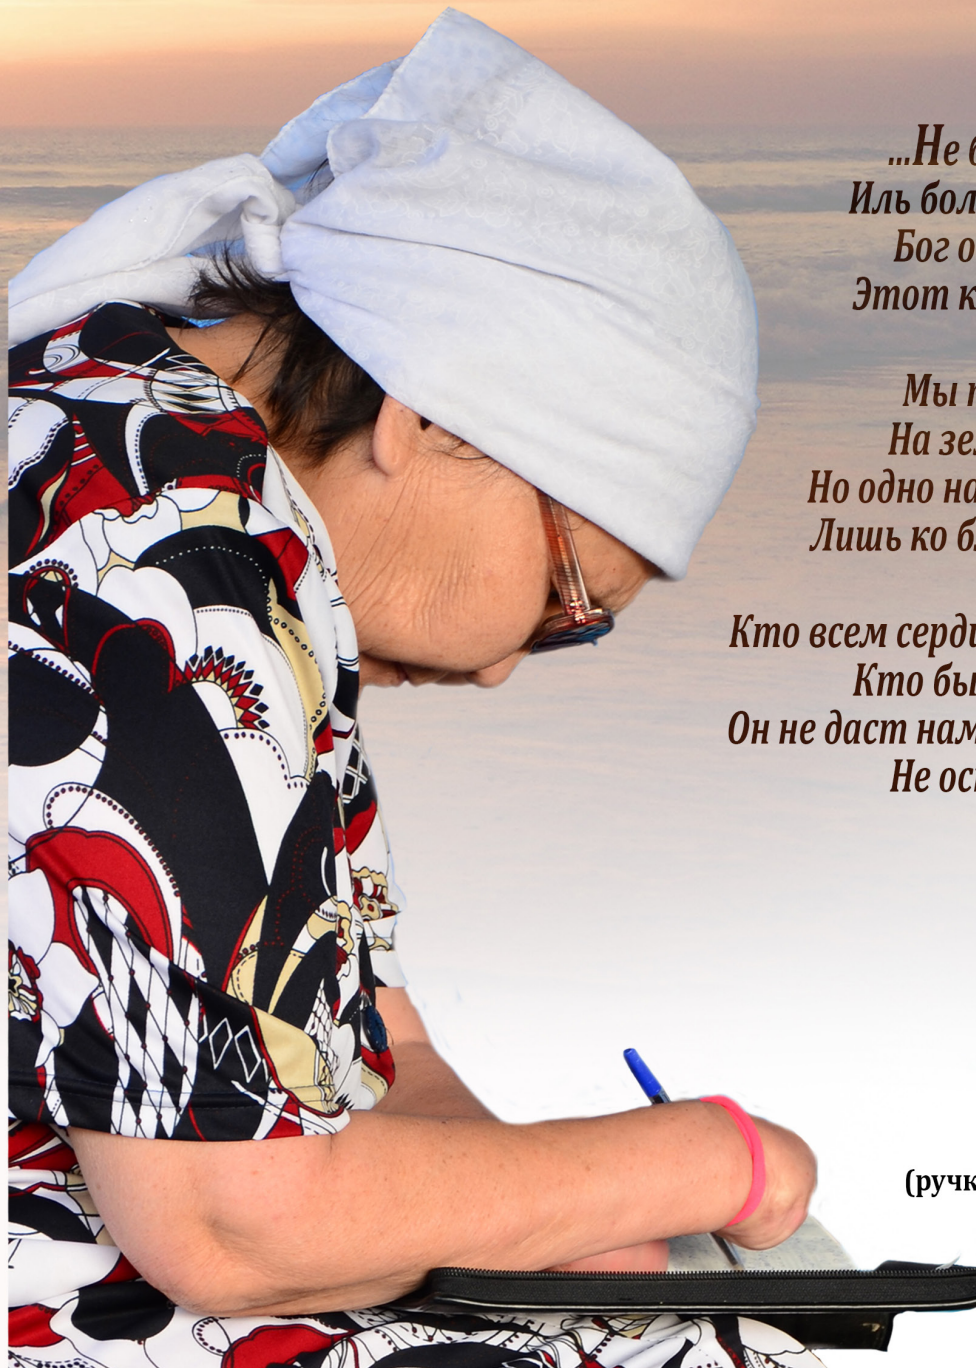 ...Не б
Иль бол
Бог о
Этот к
Мы
На зе
Но одно на
Лишь ко б
Кто всем серд
Кто бы
Он не даст нам
Не ос
(ручк